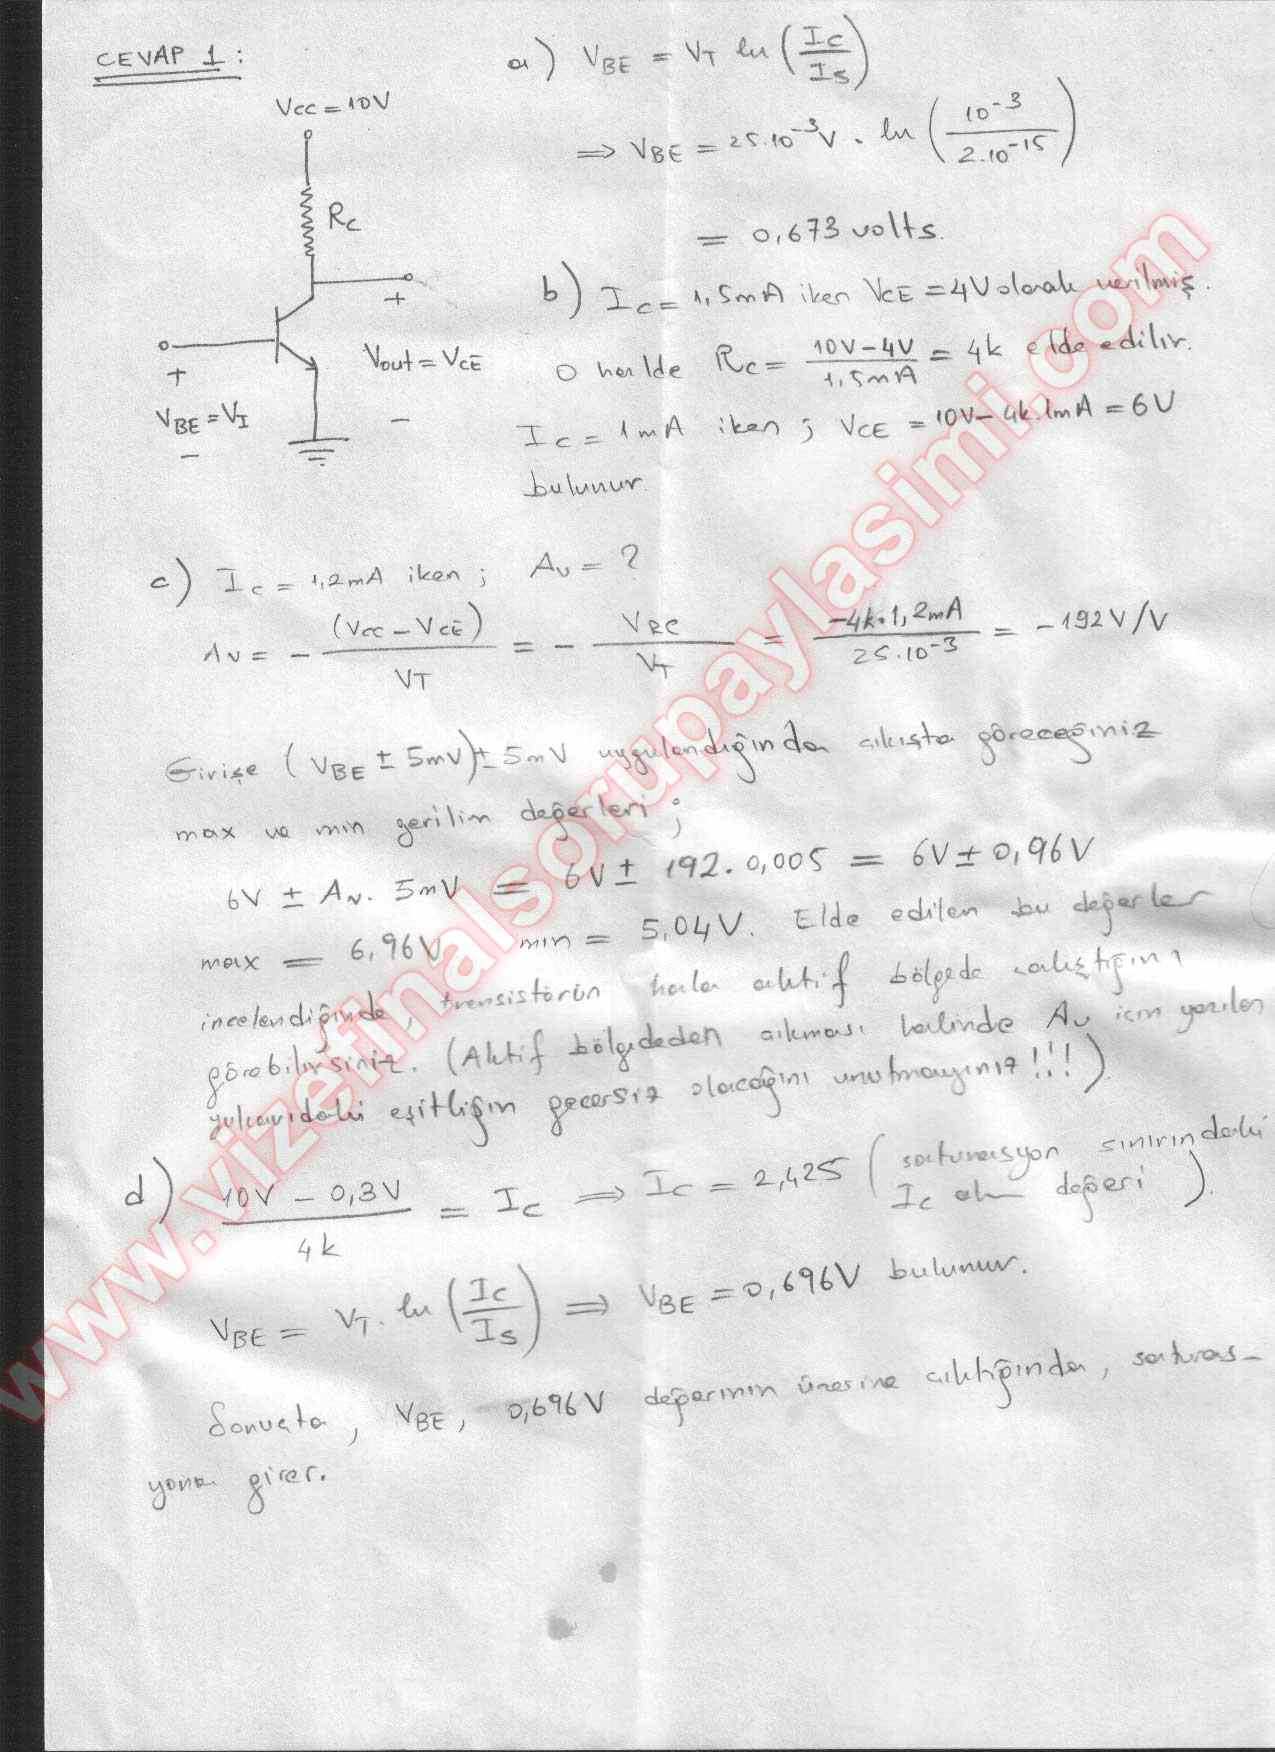 CEVAP 1:
a) VBE = VT ln (Ic/Is)
Vcc = 10V
⇒ VBE = 25.10⁻³V . ln (10⁻³/2.10⁻¹⁵)
Rc
= 0,673 volts.
b) Ic = 1,5mA iken VCE = 4V olarak verilmiş.
+
Vout = VCE
-
+
VBE = VI
-
O halde Rc = (10V-4V)/1,5mA = 4k elde edilir.
Ic = 1mA iken ; VCE = 10V - 4k.1mA = 6V
bulunur.
c) Ic = 1,2mA iken ; Av = ?
Av = - (Vcc - VCE)/VT = - VRC/VT = -4k.1,2mA/25.10⁻³ = -192 V/V
Girişe (VBE ± 5mV) ± 5mV uygulandığında çıkışta göreceğiniz
max ve min gerilim değerleri ;
6V ± Av. 5mV = 6V ± 192. 0,005 = 6V ± 0,96V
max = 6,96V min = 5,04V. Elde edilen bu değerler
incelendiğinde, transistörün hala aktif bölgede çalıştığını
görebilirsiniz. (Aktif bölgededen çıkması halinde Av için yazılan
yukarıdaki eşitliğin geçersiz olacağını unutmayınız!!!)
d) (10V - 0,3V)/4k = Ic ⇒ Ic = 2,425 (saturasyon sınırındaki
Ic değeri).
VBE = VT. ln (Ic/Is) ⇒ VBE = 0,696V bulunur.
Sonuçta, VBE, 0,696V değerinin üzerine çıktığında, saturas-
yona girer.
www.vizefinalsorupaylasimi.com